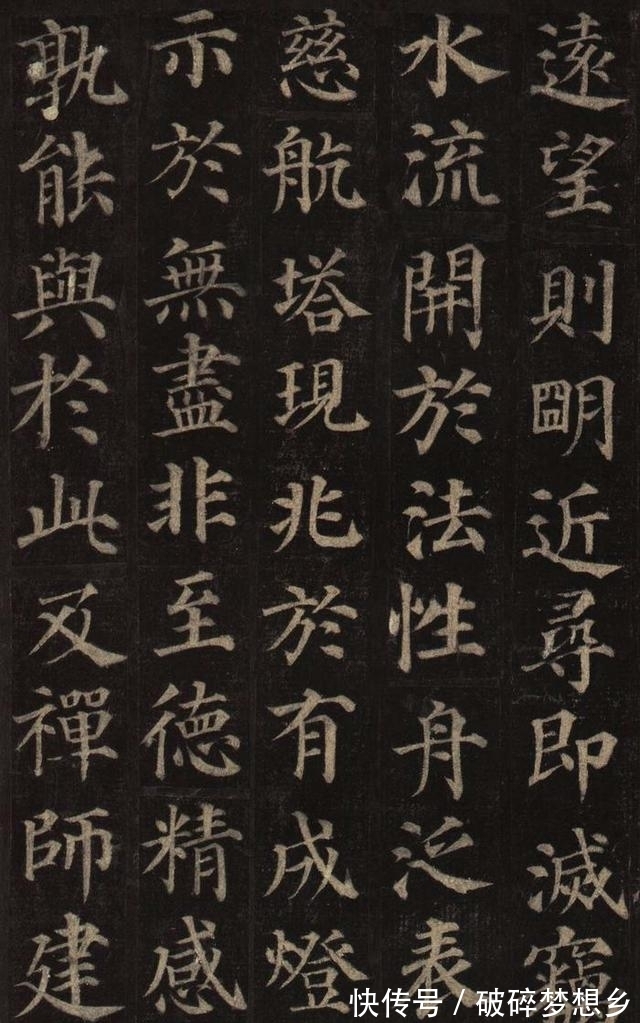 遠望則朙近尋即滅竊
水流開於法性舟泛表
慈航塔現兆於有成燈
示於無盡非至徳精感
孰能與於此及禪師建
快传号 / 破碎梦想乡